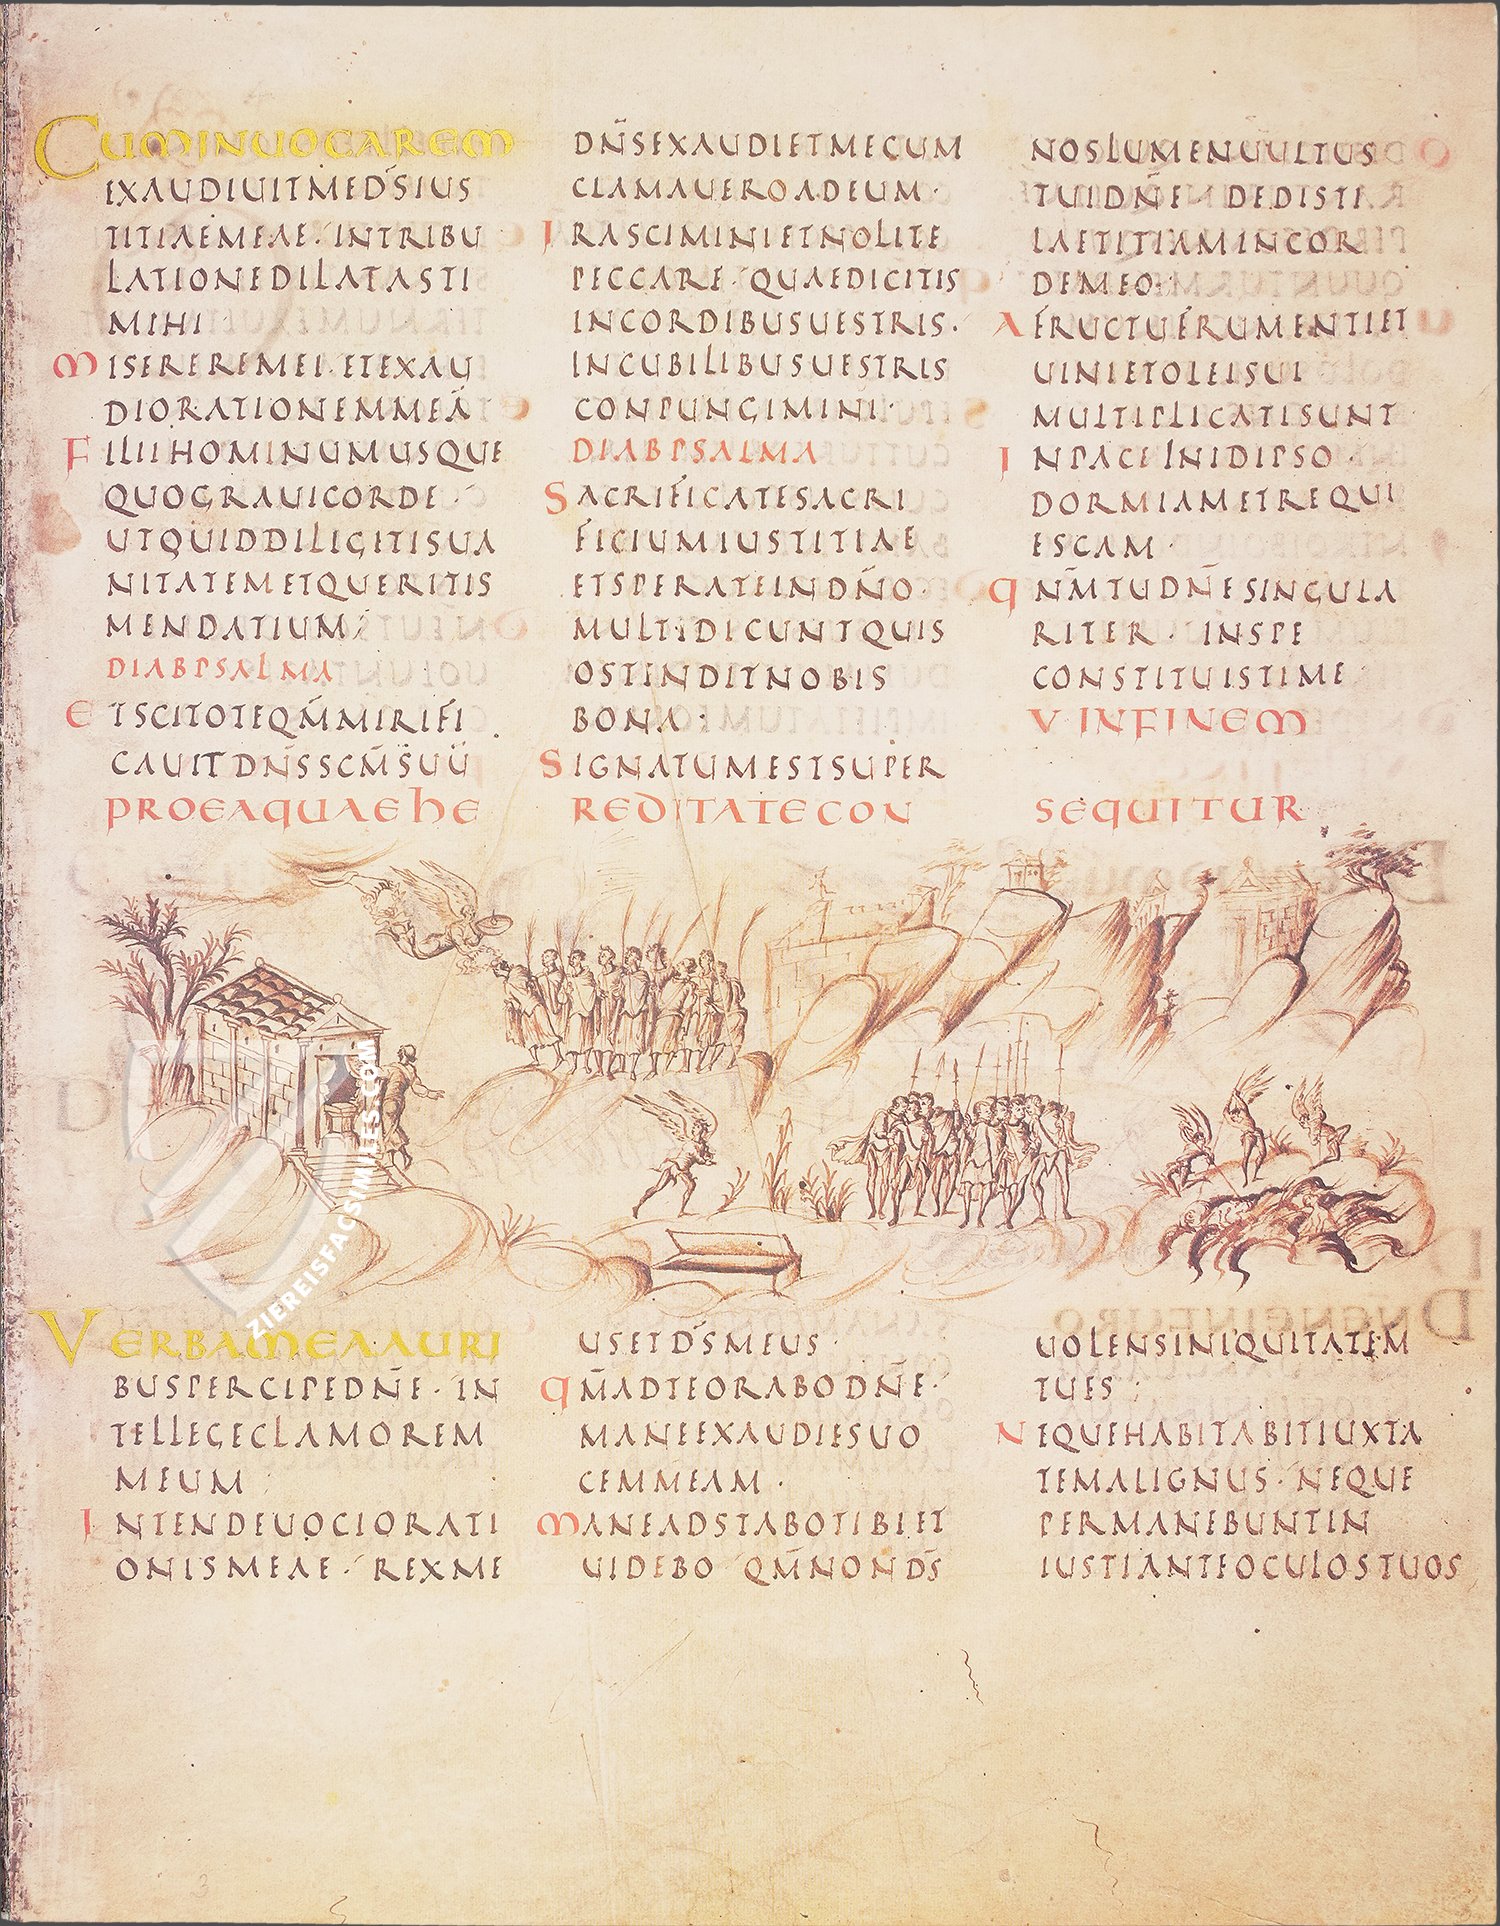 CUMINUOCAREM
EXAUDIUITMEDS̄IUS
TITIAEMEAE·INTRIBU
LATIONEDILATASTI
MIHI
MISEREREMEI·ETEXAU
DIORATIONEMMEĀ
FILIIHOMINUMUSQUE
QUOGRAUICORDE·
UTQUIDDILIGITISUA
NITATEMETQUERITIS
MENDATIUM
DIABPSALMA
ETSCITOTEQM̄MIRIFI
CAUITDN̄SSCM̄SUŪ
DN̄SEXAUDIETMECUM
CLAMAUEROADEUM·
IRASCIMINIETNOLITE
PECCARE·QUAEDICITIS
INCORDIBUSUESTRIS·
INCUBILIBUSUESTRIS
CONPUNGIMINI·
DIABPSALMA
SACRIFICATESACRI
FICIUMIUSTITIAE
ETSPERATEINDN̄O·
MULTIDICUNTQUIS
OSTENDITNOBIS
BONA·
SIGNATUMESTSUPER
NOSLUMENUULTUS
TUIDN̄E·DEDISTI
LAETITIAMINCOR
DEMEO·
AFRUCTUFRUMENTIET
UINIETOLEISUI
MULTIPLICATISUNT·
INPACEINIDIPSO·
DORMIAMETREQUI
ESCAM·
QNM̄TUDN̄ESINGULA
RITER·INSPE
CONSTITUISTIME
V INFINEM
PROEAQUAEHE REDITATECON SEQUITUR
VERBAMEAAURI
BUSPERCIPEDN̄E·IN
TELLEGECLAMOREM
MEUM
INTENDEUOCIORATI
ONISMEAE·REXME
USETDS̄MEUS·
QM̄ADTEORABODN̄E·
MANEEXAUDIESUO
CEMMEAM·
MANEADSTABOTIBIET
UIDEBO·QM̄NONDS̄
UOLENSINIQUITATEM
TUES
NEQUEHABITABITIUXTA
TEMALIGNUS·NEQUE
PERMANEBUNTIN
IUSTIANTEOCULOSTUOS
ZIEREISFACSIMILES.COM
3